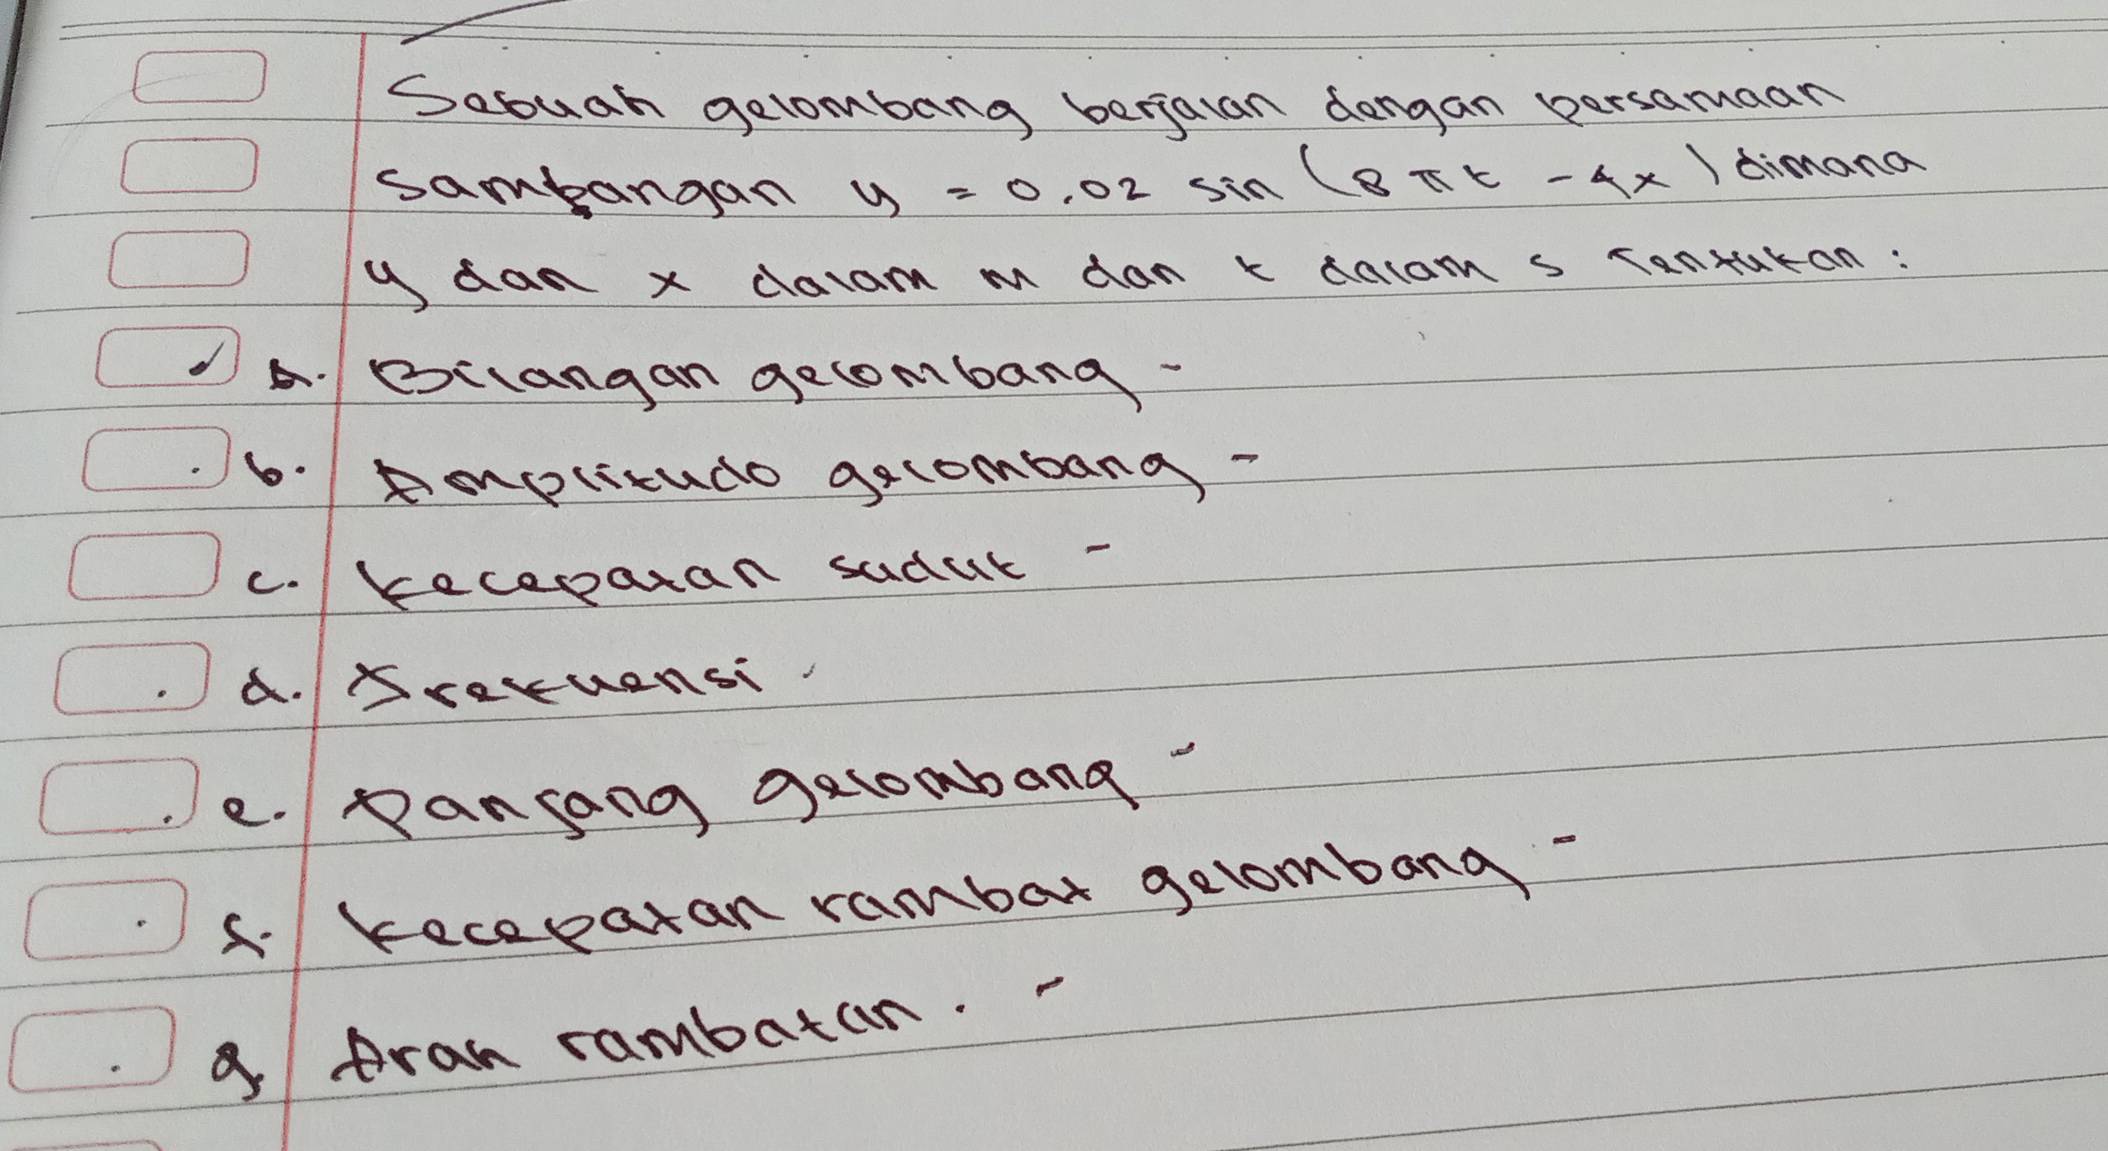 Sebuah gelombang berjalan dengan persamaan
Sampangan y = 0,02 sin (8 πt - 4x) dimana
y dan x dalam m dan t dalam s Tentukan :
a. Bilangan gelombang -
b. Amplitudo gelombang -
c. kecepatan sudut -
d. Frekuensi -
e. Panjang gelombang -
f. kecepatan rambat gelombang -
g. Arah rambatan . -